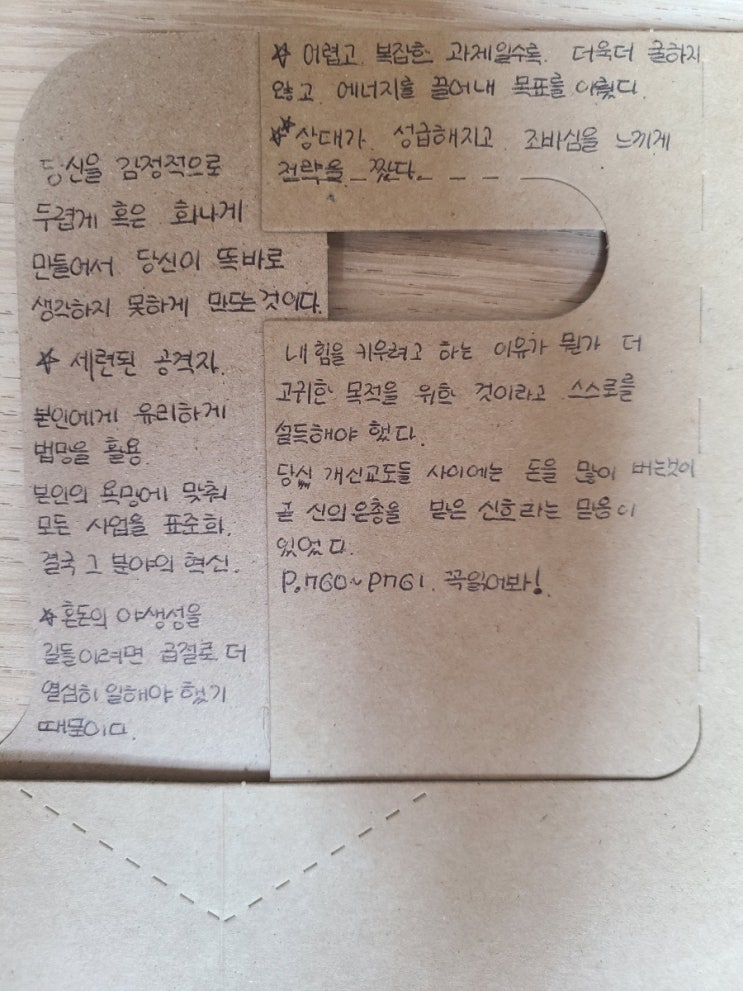 당신을 감정적으로
두렵게 혹은 화나게
만들어서 당신이 똑바로
생각하지 못하게 만드는것이다.
☆ 세련된 공격자.
본인에게 유리하게
법망을 활용.
본인의 욕망에 맞춰
모든 사업을 표준화.
결국 그 분야의 혁신.
☆ 혼돈의 야생성을
길들이려면 곱절로 더
열심히 일해야 했기
때문이다.
☆ 어렵고 복잡한 과제일수록 더욱더 굴하지
않고 에너지를 끌어내 목표를 이뤘다.
☆☆ 상대가 성급해지고 조바심을 느끼게
전략을 짰다.
내 힘을 키우려고 하는 이유가 뭔가 더
고귀한 목적을 위한 것이라고 스스로를
설득해야 했다.
당시 개신교도들 사이에는 돈을 많이 버는것이
곧 신의 은총을 받은 신호라는 믿음이
있었다.
P.760~P761. 꼭읽어봐!